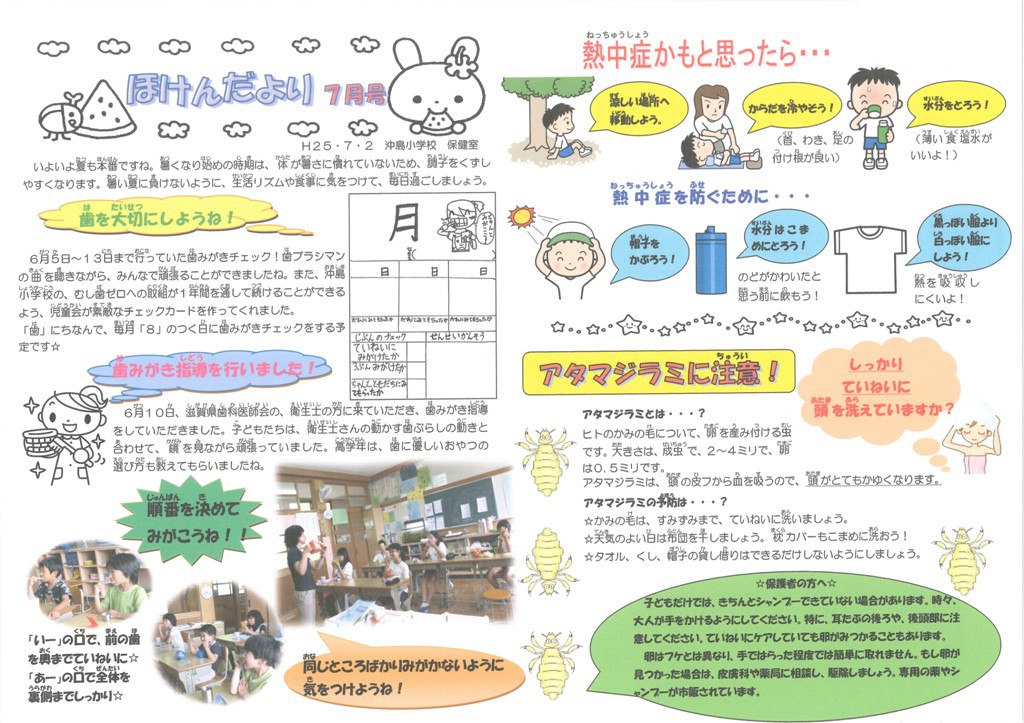 ほけんだより 7月号
H25・7・2 沖島小学校 保健室
いよいよ夏も本番ですね。暑くなり始めの時期は、体が暑さに慣れていないため、調子をくずし
やすくなります。暑い夏に負けないように、生活リズムや食事に気をつけて、毎日過ごしましょう。
歯を大切にしようね!
6月6日~13日まで行っていた歯みがきチェック!歯ブラシマン
の曲を聴きながら、みんなで頑張ることができましたね。また、沖島
小学校の、むし歯ゼロへの取組が1年間を通して続けることができる
よう、児童会が素敵なチェックカードを作ってくれました。
「歯」にちなんで、毎月「8」のつく日に歯みがきチェックをする予
定です☆
月
日 日 日
じぶんのチェック ぜんせいかんそう
ていねいに
みがけたか
3ぷんみがけたか
歯みがき指導を行いました!
6月10日、滋賀県歯科医師会の、衛生士の方に来ていただき、歯みがき指導
をしていただきました。子どもたちは、衛生士さんの動かす歯ぶらしの動きと
合わせて、鏡を見ながら頑張っていました。高学年は、歯に優しいおやつの
選び方も教えてもらいましたね。
順番を決めて
みがこうね!!
「いー」の口で、前の歯
を奥までていねいに☆
「あー」の口で全体を
裏側までしっかり☆
同じところばかりみがかないように
気をつけようね!
熱中症かもと思ったら・・・
涼しい場所へ
移動しよう。
からだを冷やそう!
(首、わき、足の
付け根が良い)
水分をとろう!
(薄い食塩水が
いいよ!)
熱中症を防ぐために・・・
帽子を
かぶろう!
水分はこま
めにとろう!
のどがかわいたと
思う前に飲もう!
黒っぽい服より
白っぽい服に
しよう!
熱を吸収し
にくいよ!
アタマジラミに注意!
しっかり
ていねいに
頭を洗えていますか?
アタマジラミとは・・・?
ヒトのかみの毛について、卵を産み付ける虫
です。大きさは、成虫で、2~4ミリで、卵
は0.5ミリです。
アタマジラミは、頭の皮フから血を吸うので、頭がとてもかゆくなります。
アタマジラミの予防は・・・?
☆かみの毛は、すみずみまで、ていねいに洗いましょう。
☆天気のよい日は布団を干しましょう。枕カバーもこまめに洗おう!
☆タオル、くし、帽子の貸し借りはできるだけしないようにしましょう。
☆保護者の方へ☆
子どもだけでは、きちんとシャンプーできていない場合があります。時々、
大人が手をかけるようにしてください。特に、耳たぶの後ろや、後頭部に注
意してください。ていねいにケアしていても卵がみつかることもあります。
卵はフケとは異なり、手ではらった程度では簡単に取れません。もし卵が
見つかった場合は、皮膚科や薬局に相談し、駆除しましょう。専用の薬やシ
ャンプーが市販されています。